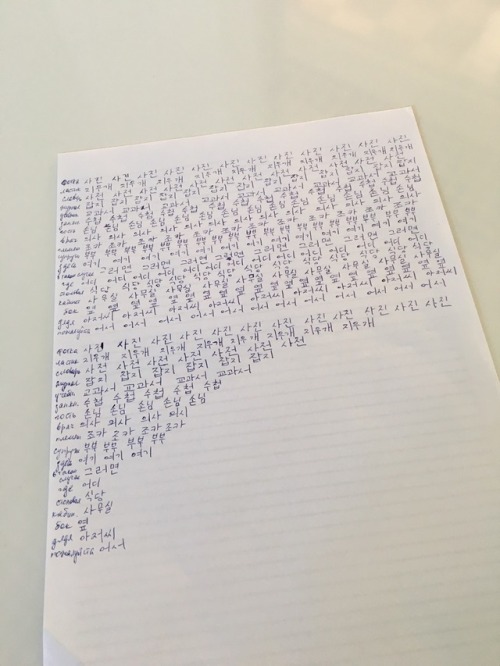 фотка 사진 사진 사진 사진 사진 사진 사진 사진 사진 사진 사진
ластик 지우개 지우개 지우개 지우개 지우개 지우개 지우개 지우개
словарь 사전 사전 사전 사전 사전 사전 사전 사전 사전 사전
журнал 잡지 잡지 잡지 잡지 잡지 잡지 잡지 잡지 잡지 잡지
учебн 교과서 교과서 교과서 교과서 교과서 교과서 교과서
запис 수첩 수첩 수첩 수첩 수첩 수첩 수첩 수첩 수첩
гость 손님 손님 손님 손님 손님 손님 손님 손님 손님
врач 의사 의사 의사 의사 의사 의사 의사 의사 의사
племян 조카 조카 조카 조카 조카 조카 조카 조카 조카
супруги 부부 부부 부부 부부 부부 부부 부부 부부 부부
здесь 여기 여기 여기 여기 여기 여기 여기 여기 여기
그러면 그러면 그러면 그러면 그러면 그러면 그러면
где 어디 어디 어디 어디 어디 어디 어디 어디 어디
столовая 식당 식당 식당 식당 식당 식당 식당 식당 식당
кабин. 사무실 사무실 사무실 사무실 사무실 사무실 사무실
бок 옆 옆 옆 옆 옆 옆 옆 옆 옆 옆
дядя 아저씨 아저씨 아저씨 아저씨 아저씨 아저씨 아저씨
пожалуйста 어서 어서 어서 어서 어서 어서 어서 어서 어서
фотка 사진 사진 사진 사진 사진 사진 사진 사진 사진 사진 사진
ластик 지우개 지우개 지우개 지우개 지우개 지우개 지우개
словарь 사전 사전 사전 사전 사전 사전
журнал 잡지 잡지 잡지 잡지 잡지
учебн 교과서 교과서 교과서 교과서
запис 수첩 수첩 수첩 수첩
гость 손님 손님 손님 손님 손님
врач 의사 의사 의사 의사
племян 조카 조카 조카 조카
супруги 부부 부부 부부 부부
здесь 여기 여기 여기
그러면
где 어디
столовая 식당
кабин. 사무실
бок 옆
дядя 아저씨
пожалуйста 어서